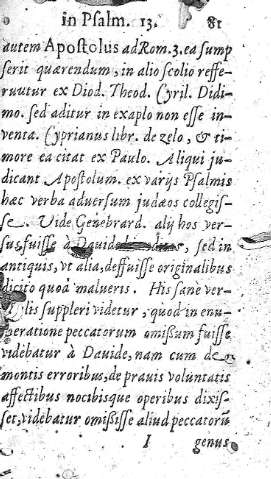 in Psalm. 13. 81
autem Apostolus ad Rom. 3. ea sump
serit quærendum, in alio scolio reffe-
ruutur ex Diod. Theod. Cyril. Didi-
mo. sed aditur in exaplo non esse in-
venta. Cyprianus libr. de zelo, & ti-
more ea citat ex Paulo. Aliqui ju-
dicant Apostolum. ex varijs Psalmis
hæc verba adversum judæos collegis-
se. Vide Genebrard. alij hos ver-
sus, fuisse à Davide, sed in
antiquis, vt alia, deffuisse originalibus
dicito quod malueris. His sane ver-
lis suppleri videtur, quod in enu-
meratione peccatorum omißum fuisse
videbatur à Dauide, nam cum de
montis erroribus, de prauis voluntatis
affectibus nocibisque operibus dixis-
set, videbatur omißisse aliud peccatorũ
I genus